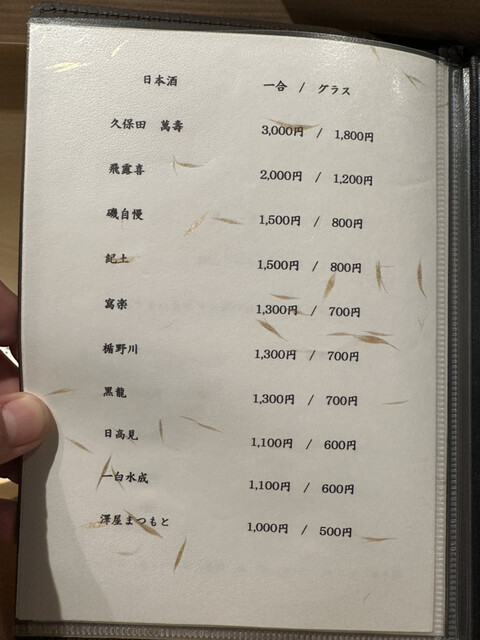 日本酒 一合 / グラス
久保田 萬壽 3,000円 / 1,800円
飛露喜 2,000円 / 1,200円
磯自慢 1,500円 / 800円
紀土 1,500円 / 800円
寫楽 1,300円 / 700円
楯野川 1,300円 / 700円
黒龍 1,300円 / 700円
日高見 1,100円 / 600円
一白水成 1,100円 / 600円
澤屋まつもと 1,000円 / 500円